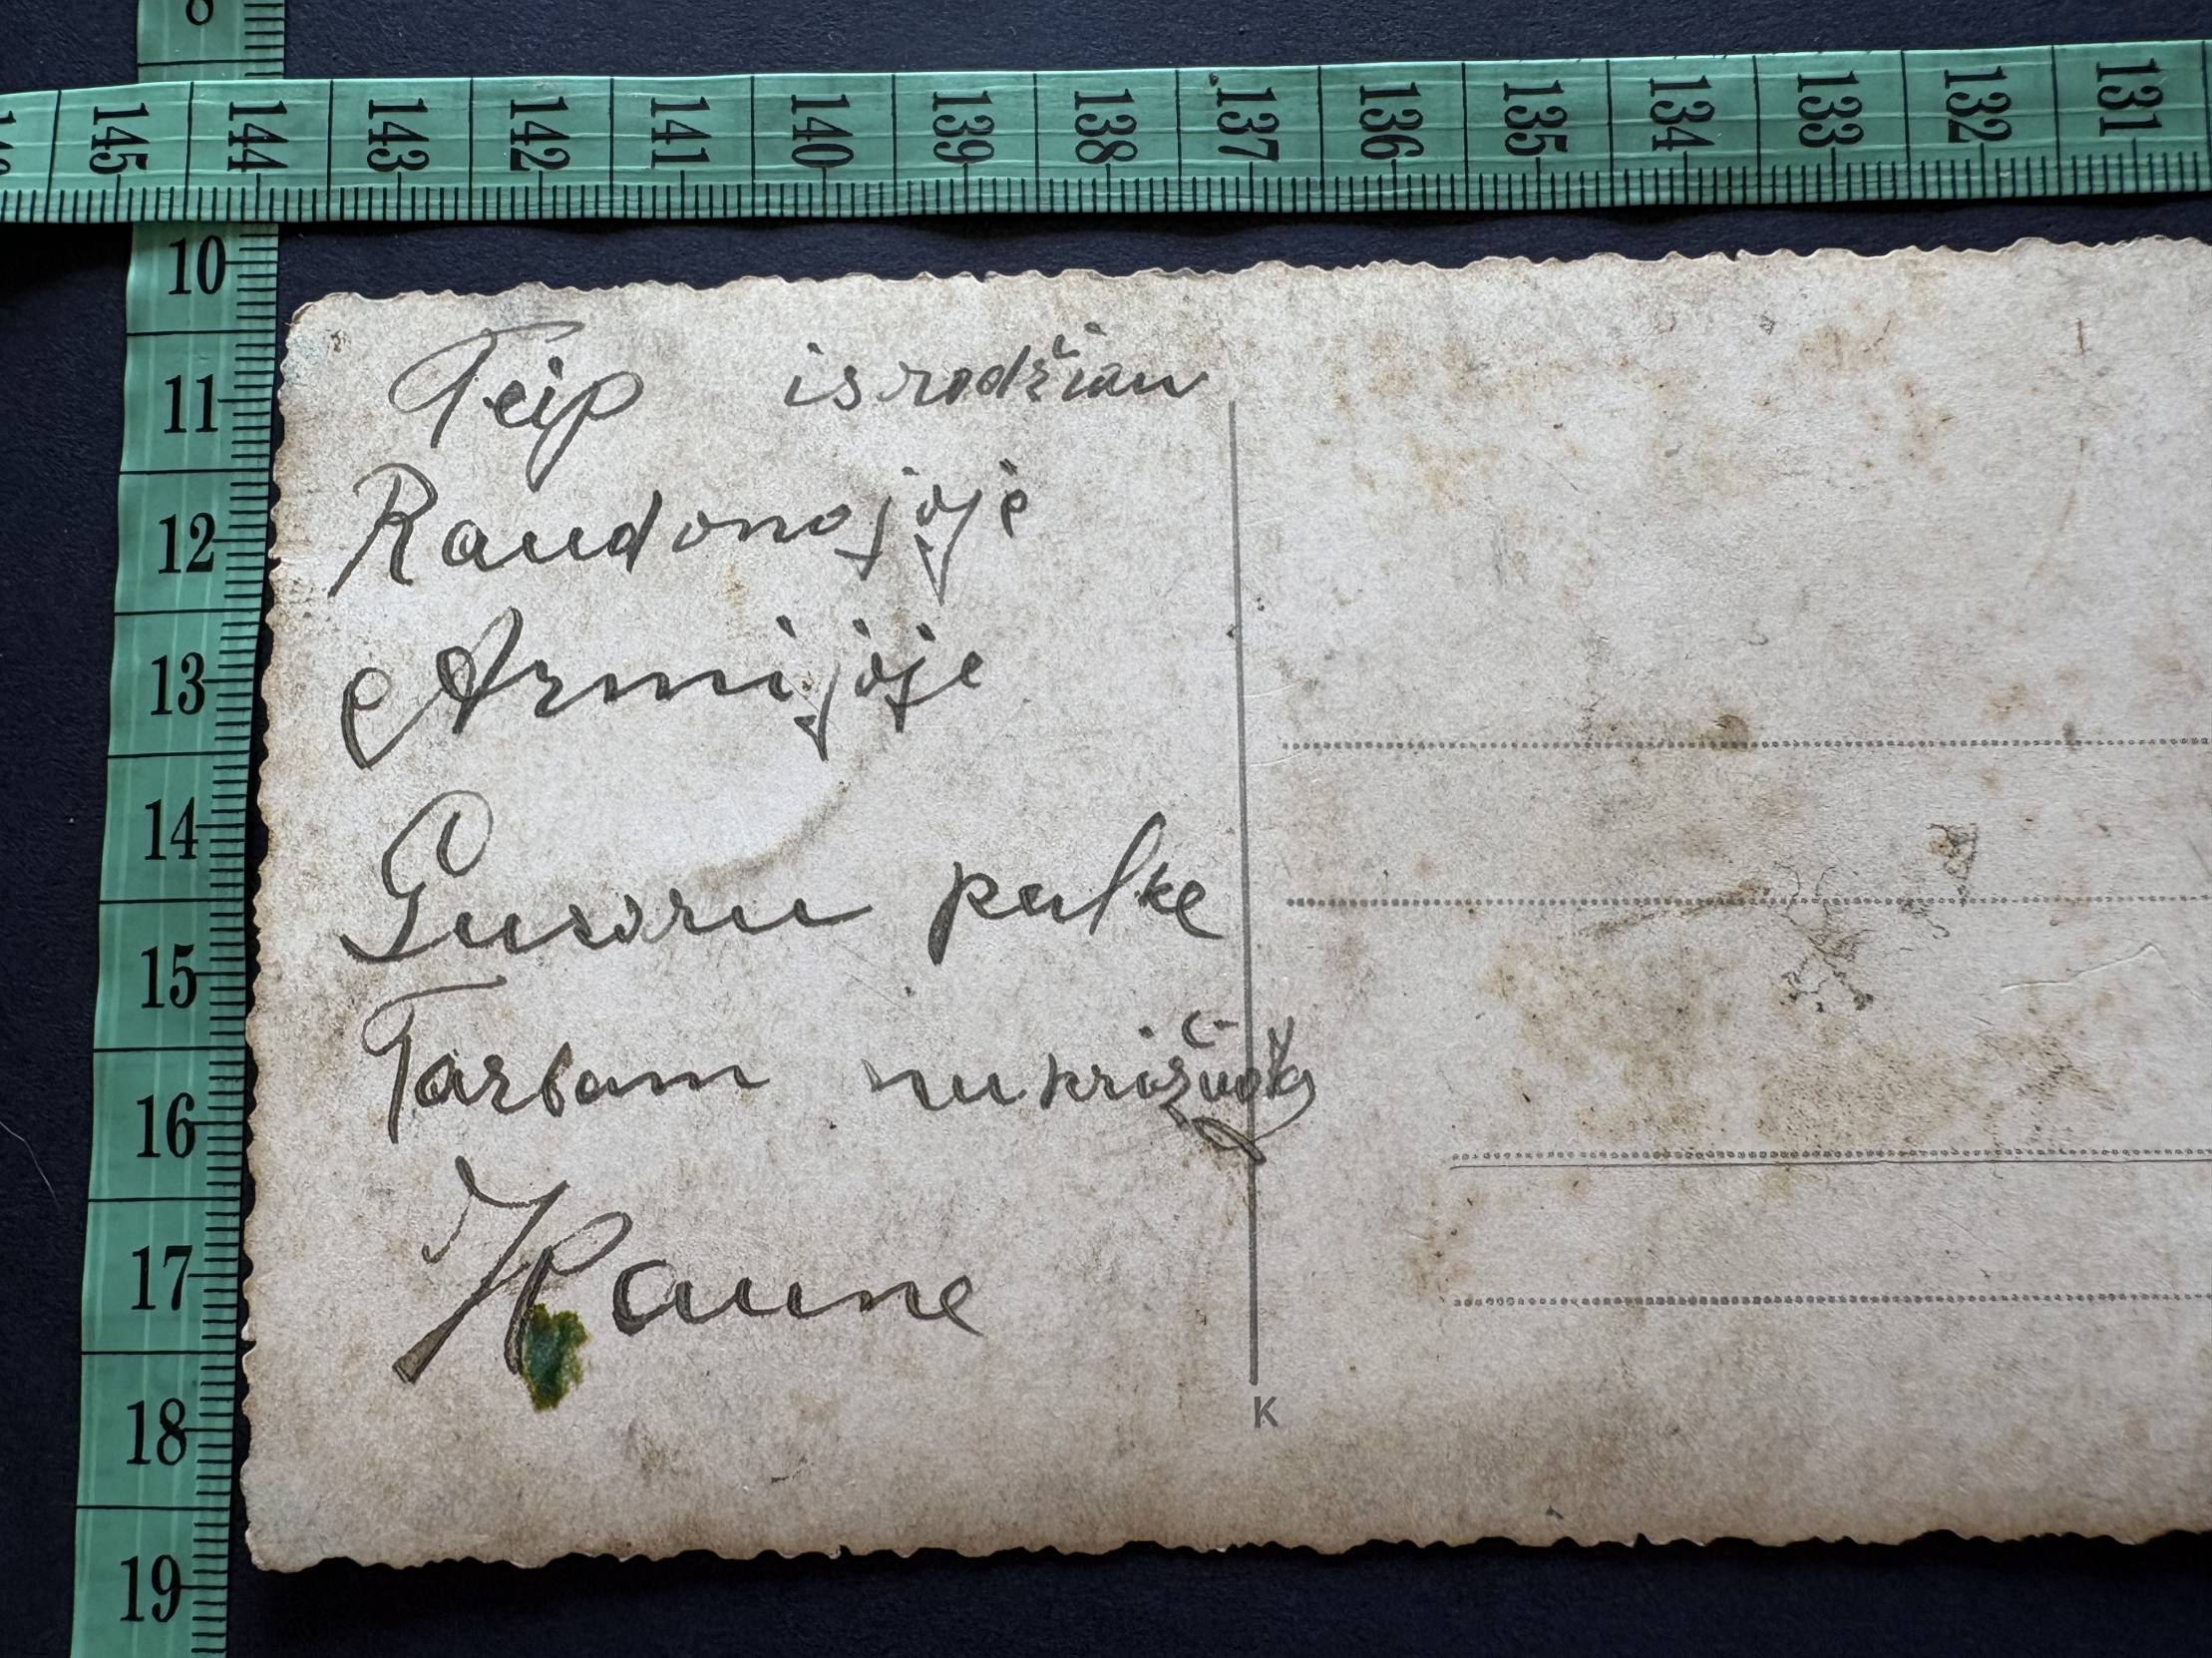 8
145 144 143 142 141 140 139 138 137 136 135 134 133 132 131
10
11
12
13
14
15
16
17
18
19
Teip isrodžiau
Raudonojoje
Armijoje
Gusoru pulke
Tarbam
Kaune
K